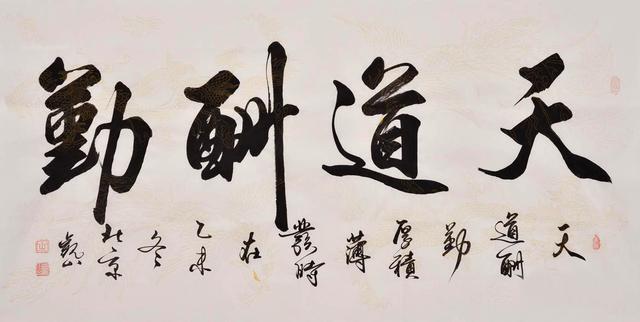 天道酬勤
天道酬勤厚積薄發時在乙未冬於京